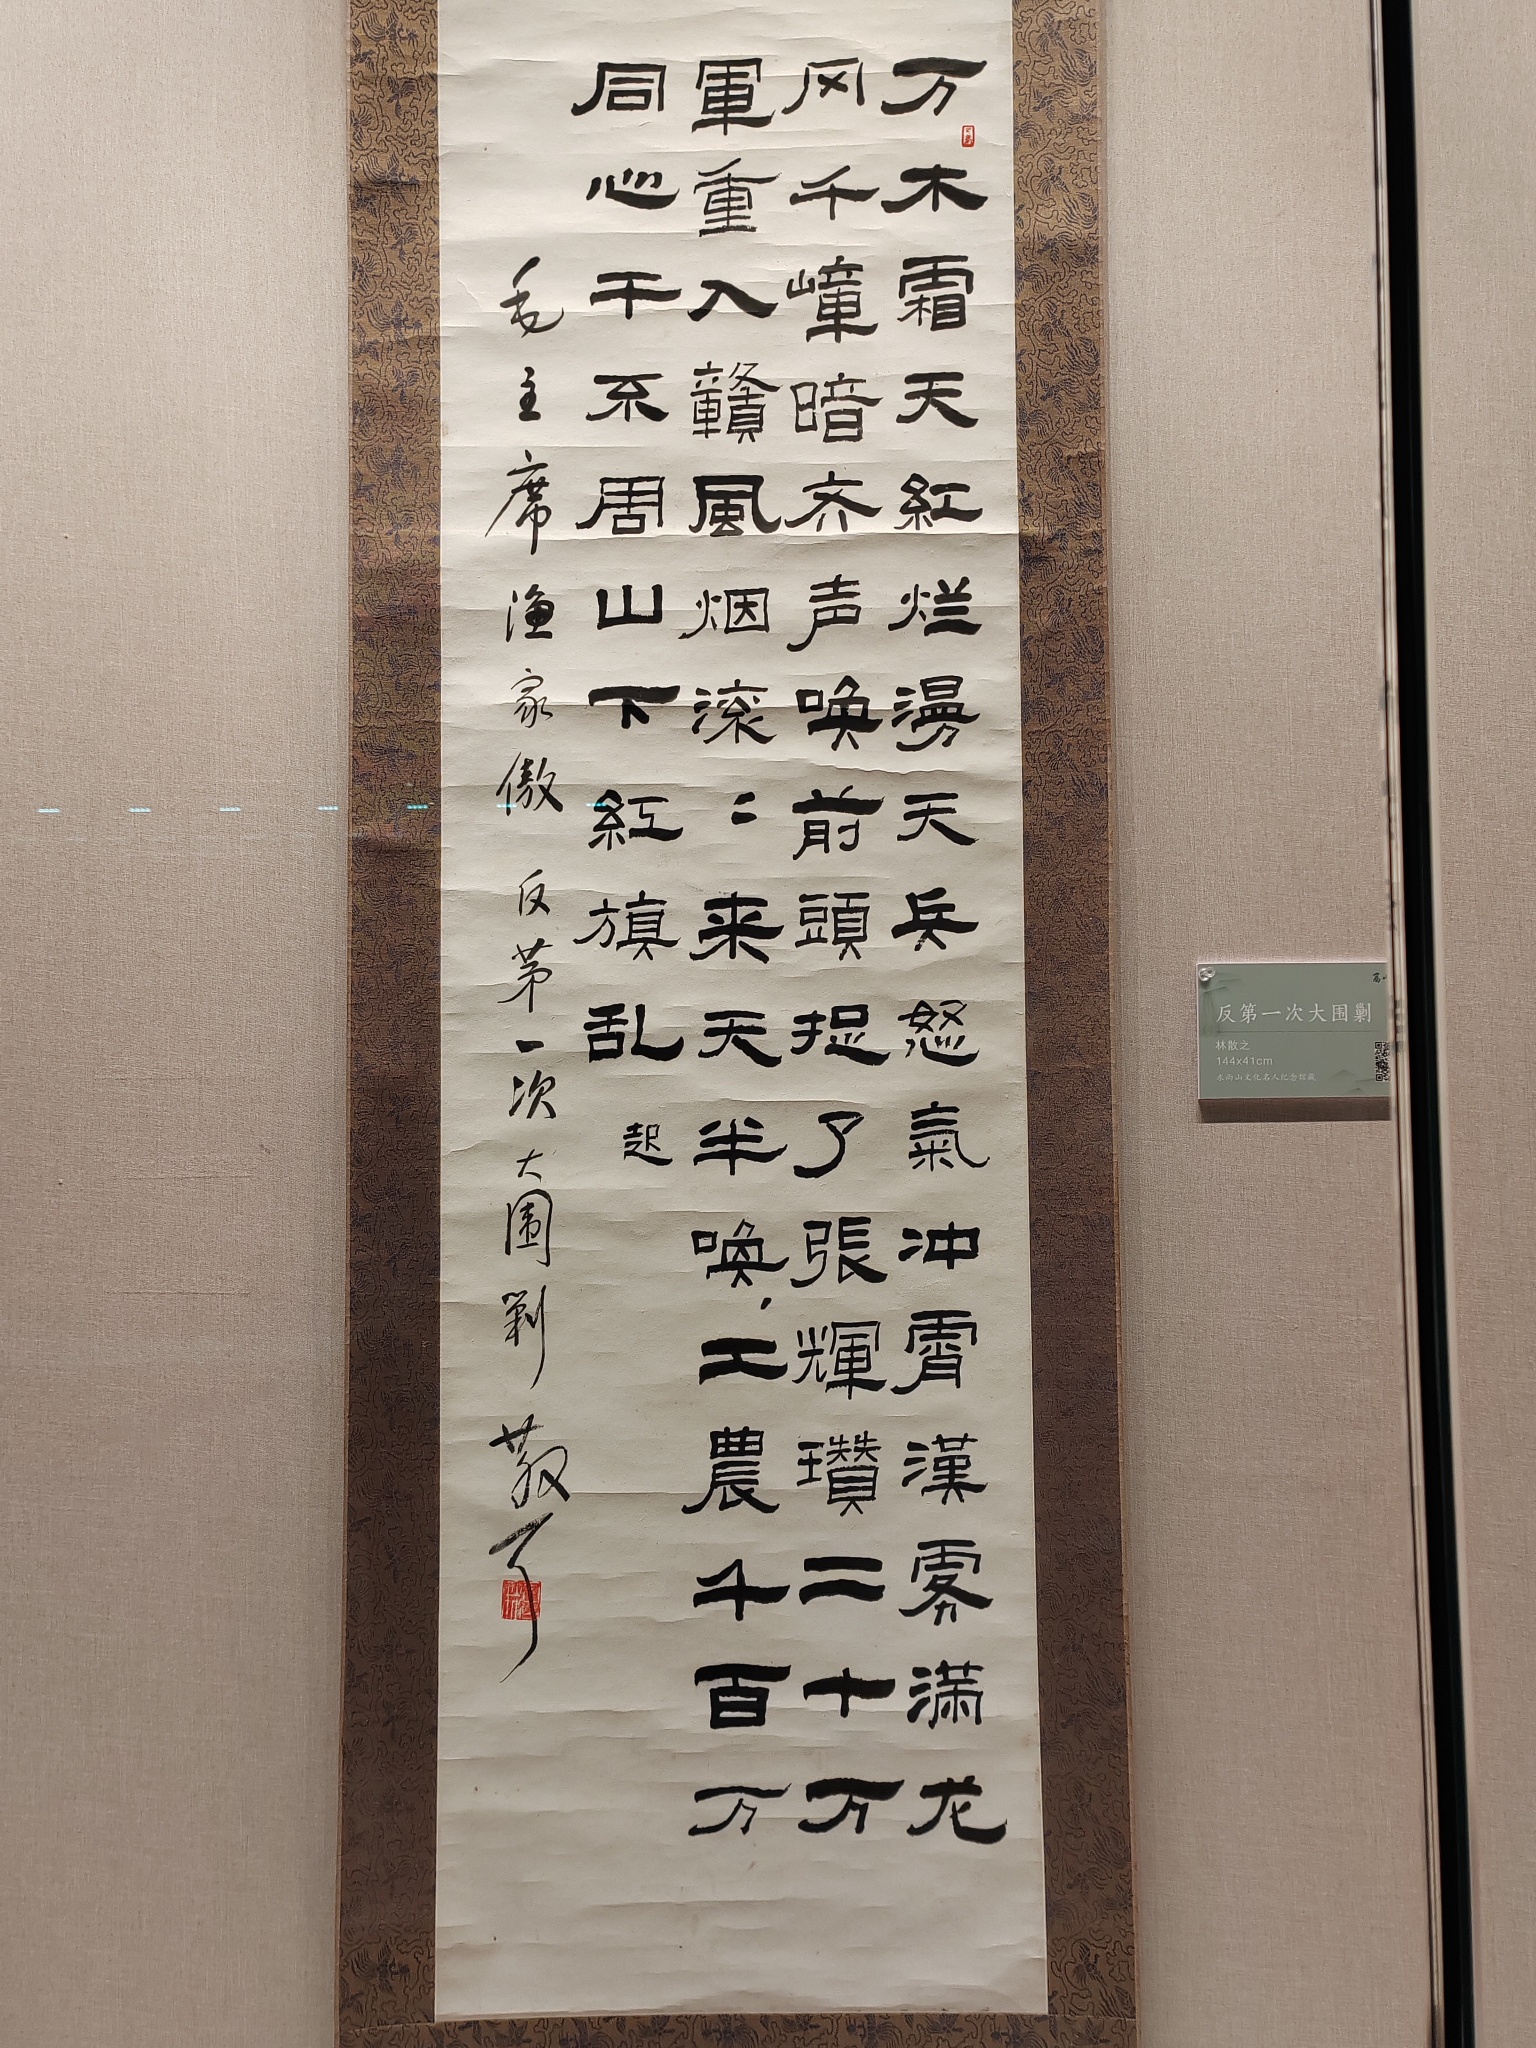 万木霜天紅烂漫天兵怒氣冲霄漢雾满龙
冈千嶂暗齐声唤前頭捉了張輝瓚二十万
軍重入贛風烟滚〻来天半唤,工農千百万
同心干不周山下紅旗乱
起
毛主席渔家傲 反苐一次大围剿 散耳
反第一次大围剿
林散之
144x41cm
求雨山文化名人纪念馆藏